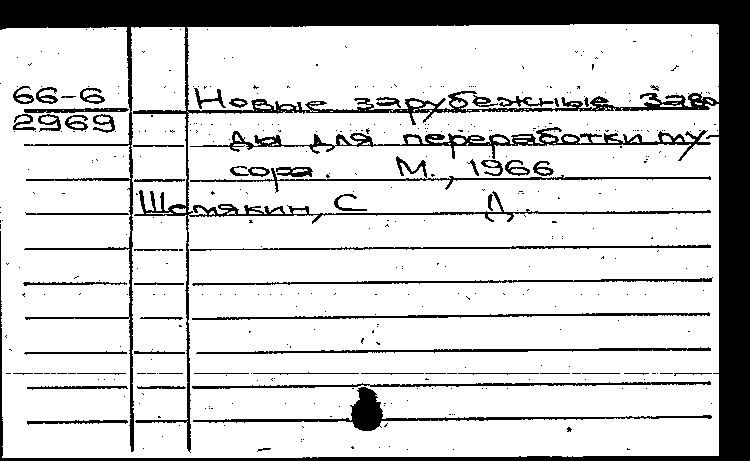 66-6
2969
Новые зарубежные заво
ды для переработки му-
сора. М., 1966.
Шемякин, С Д.